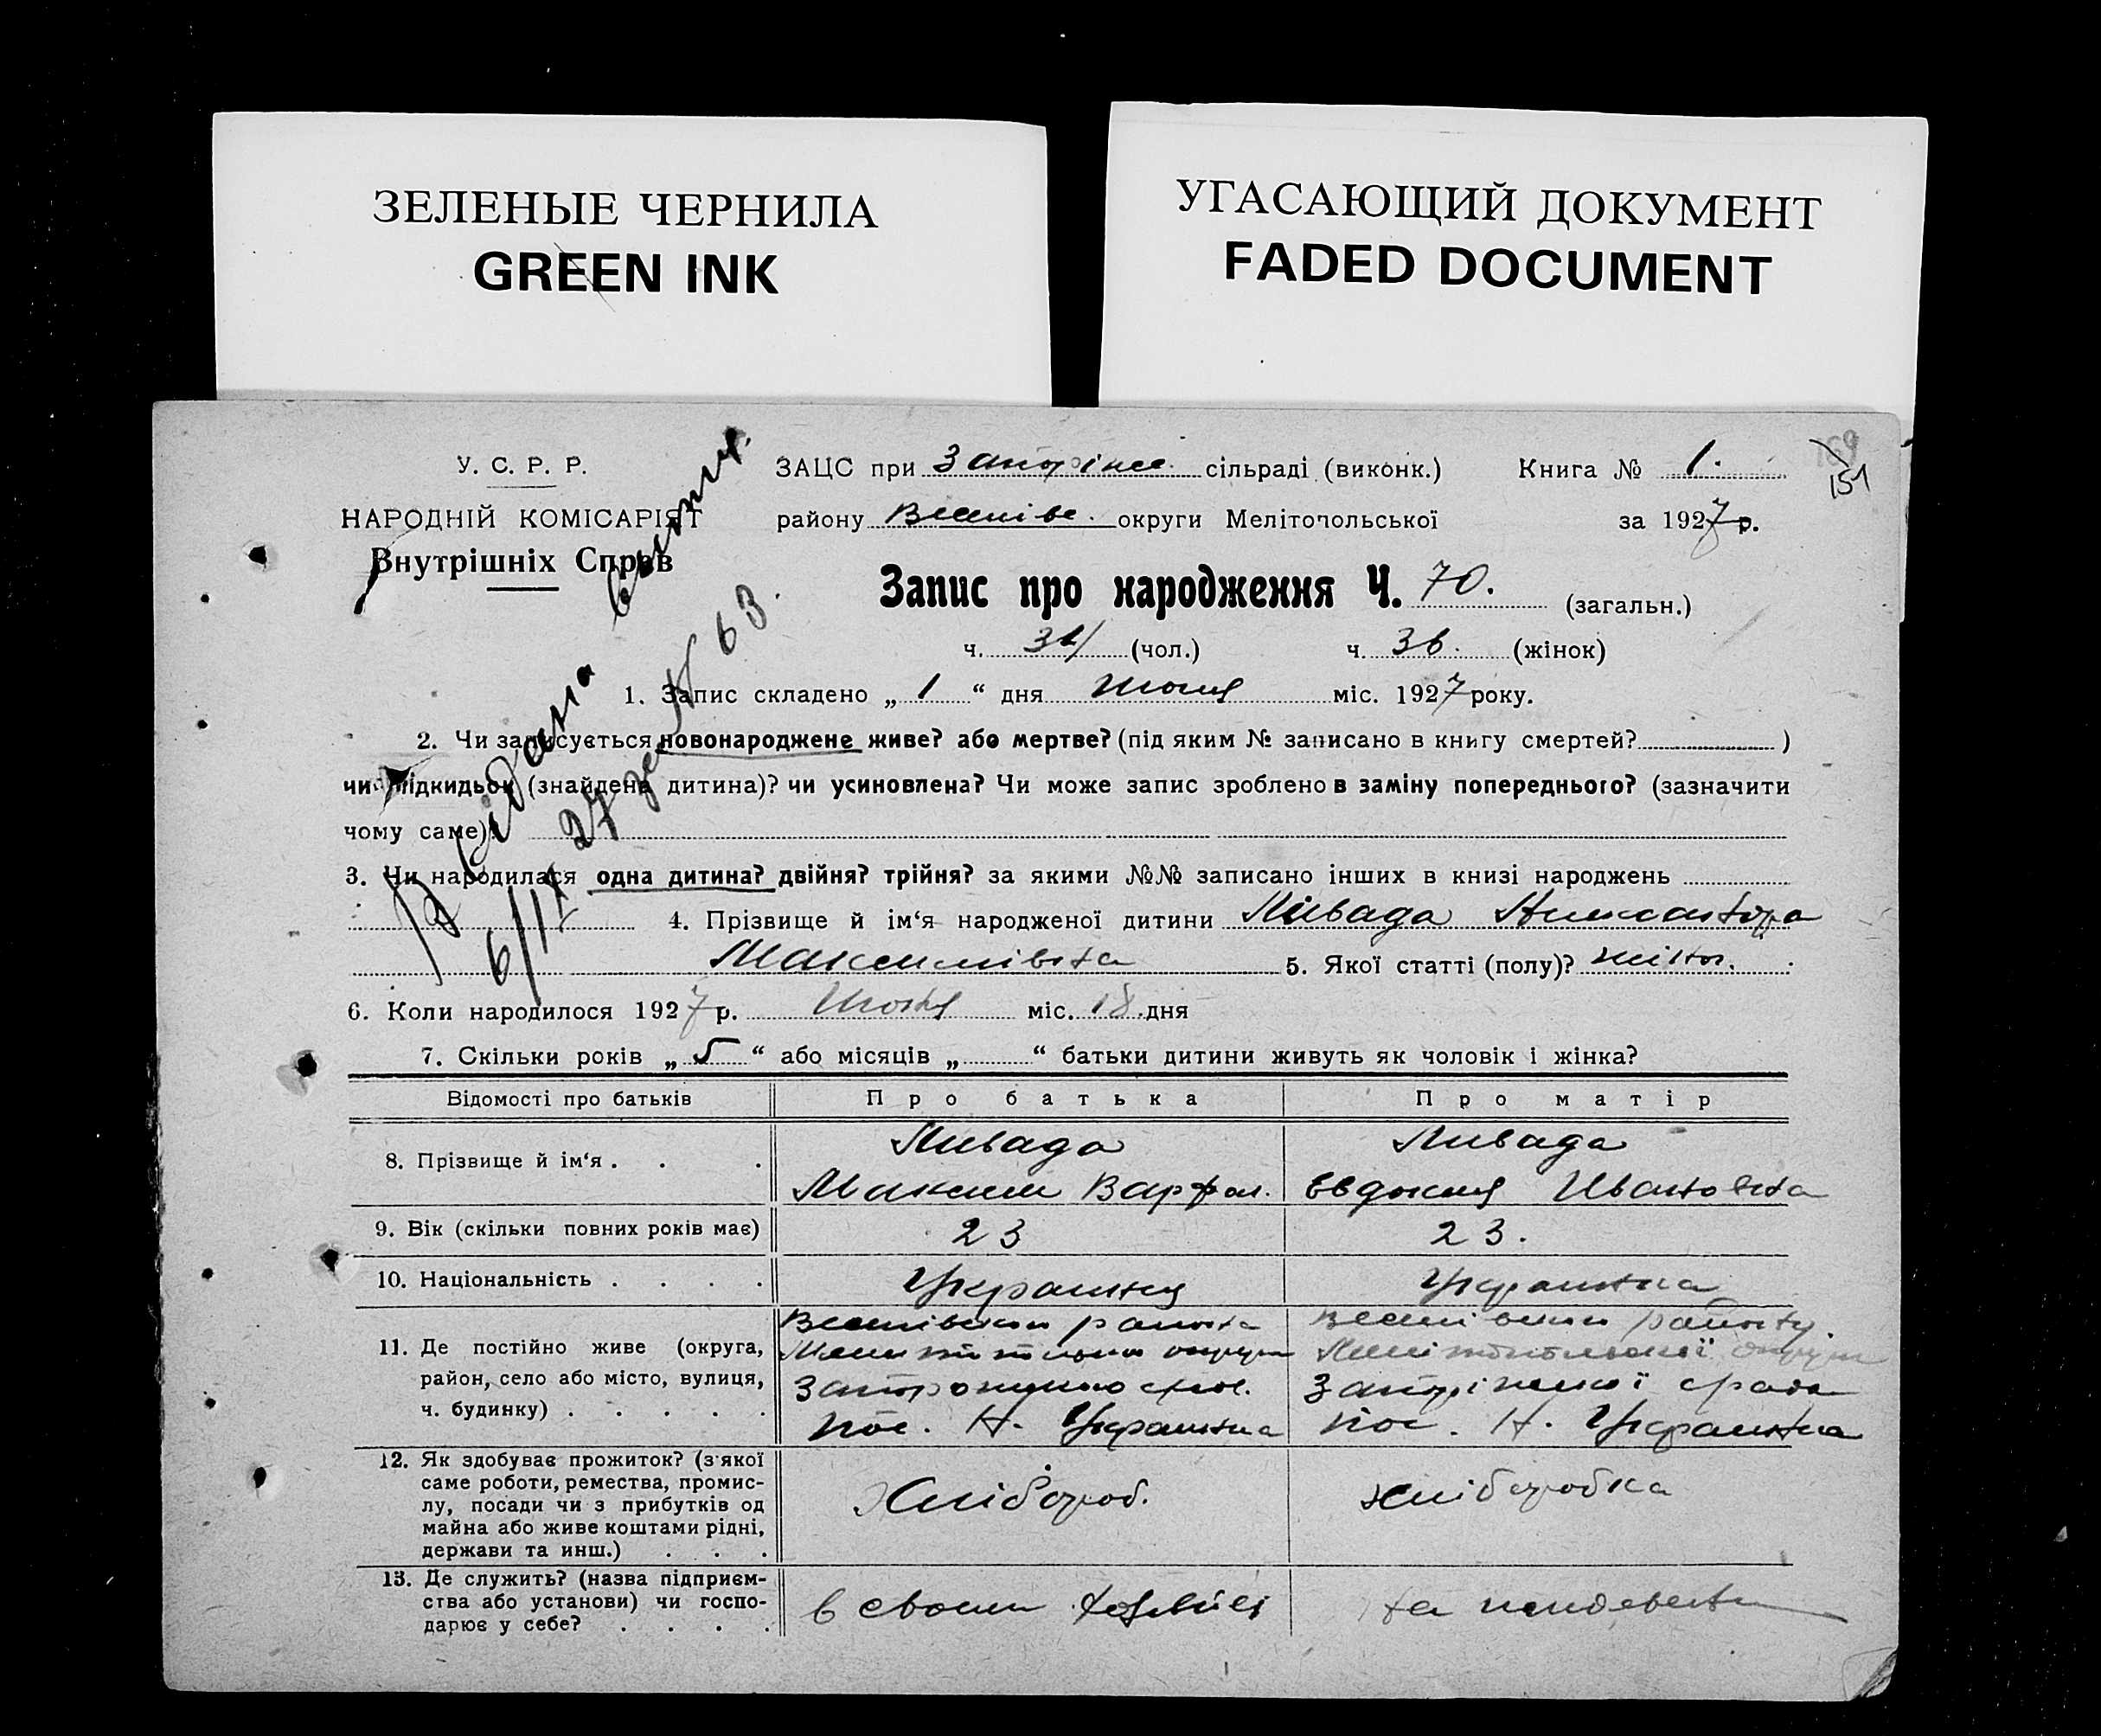 ЗЕЛЕНЫЕ ЧЕРНИЛА
GREEN INK
УГАСАЮЩИЙ ДОКУМЕНТ
FADED DOCUMENT
169
151
У. С. Р. Р.
НАРОДНІЙ КОМІСАРІЯТ
Внутрішніх Справ
ЗАЦС при сільраді (виконк.) Книга № 1.
району Веселівс. округи Мелітопольської за 1927 р.
Запис про народження Ч. 70. (загальн.)
ч. (чол.) ч. 36. (жінок)
Видана выпись
6/IX 27 № 63.
1. Запис складено „ 1 “ дня міс. 1927 року.
2. Чи записується новонароджене живе? або мертве? (під яким № записано в книгу смертей? )
чи підкидьок (знайдена дитина)? чи усиновлена? Чи може запис зроблено в заміну попереднього? (зазначити
чому саме).
3. Чи народилася одна дитина? двійня? трійня? за якими №№ записано інших в книзі народжень
4. Прізвище й ім‘я народженої дитини Лівада Александра
Максимівна 5. Якої статті (полу)? жіноч.
6. Коли народилося 1927 р. міс. 18. дня
7. Скільки років „ 5 “ або місяців „ “ батьки дитини живуть як чоловік і жінка?
Відомості про батьків Про батька Про матір
8. Прізвище й ім‘я . . . Ливада Ливада
Максим Варфол. Евдокия Ивановна
9. Вік (скільки повних років має) 23 23.
10. Національність . . . . Украинец Украинка
11. Де постійно живе (округа, район, село або місто, вулиця, ч. будинку) . . . . .
пос. Н. Украинка пос. Н. Украинка
12. Як здобуває прожиток? (з'якої саме роботи, ремества, промислу, посади чи з прибутків од майна або живе коштами рідні, держави та инш.) . . . Хлібороб. хліборобка
13. Де служить? (назва підприємства або установи) чи господарює у себе? . . . . в своем